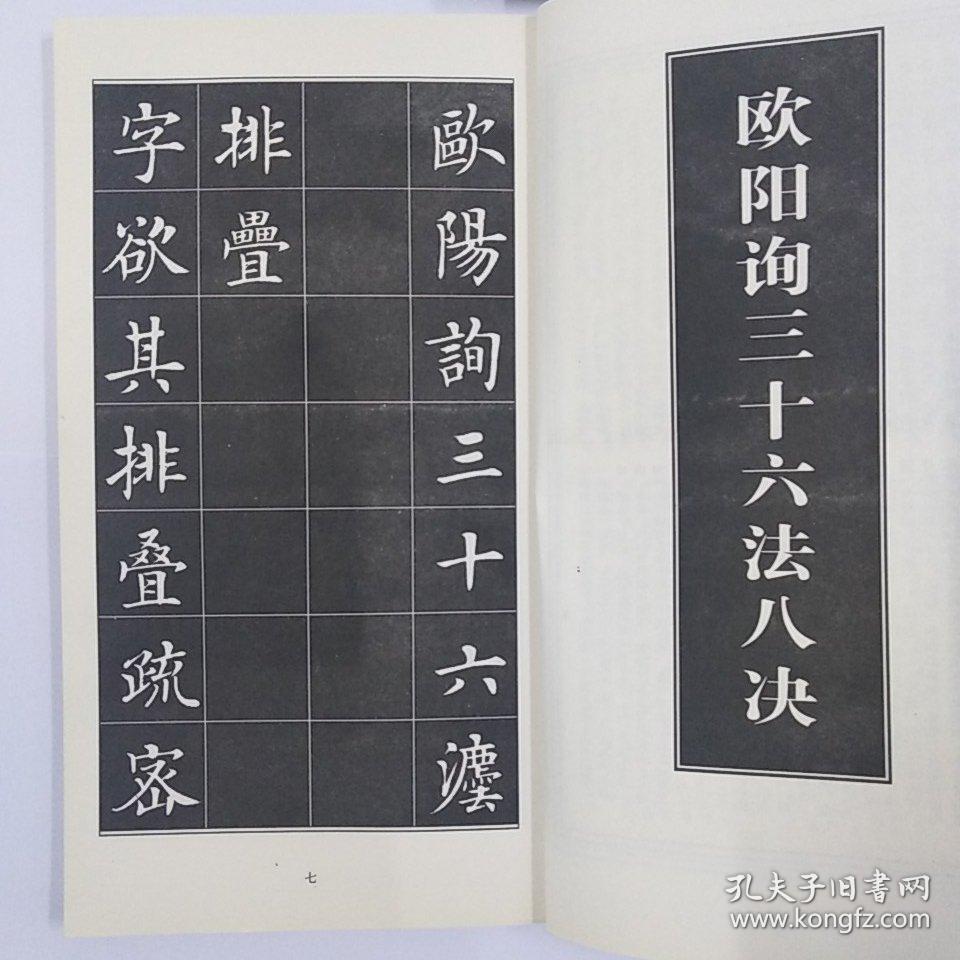 欧阳询三十六法八决
歐陽詢三十六灋
排疊
字欲其排叠疏密
七
孔夫子旧書网
www.kongfz.com